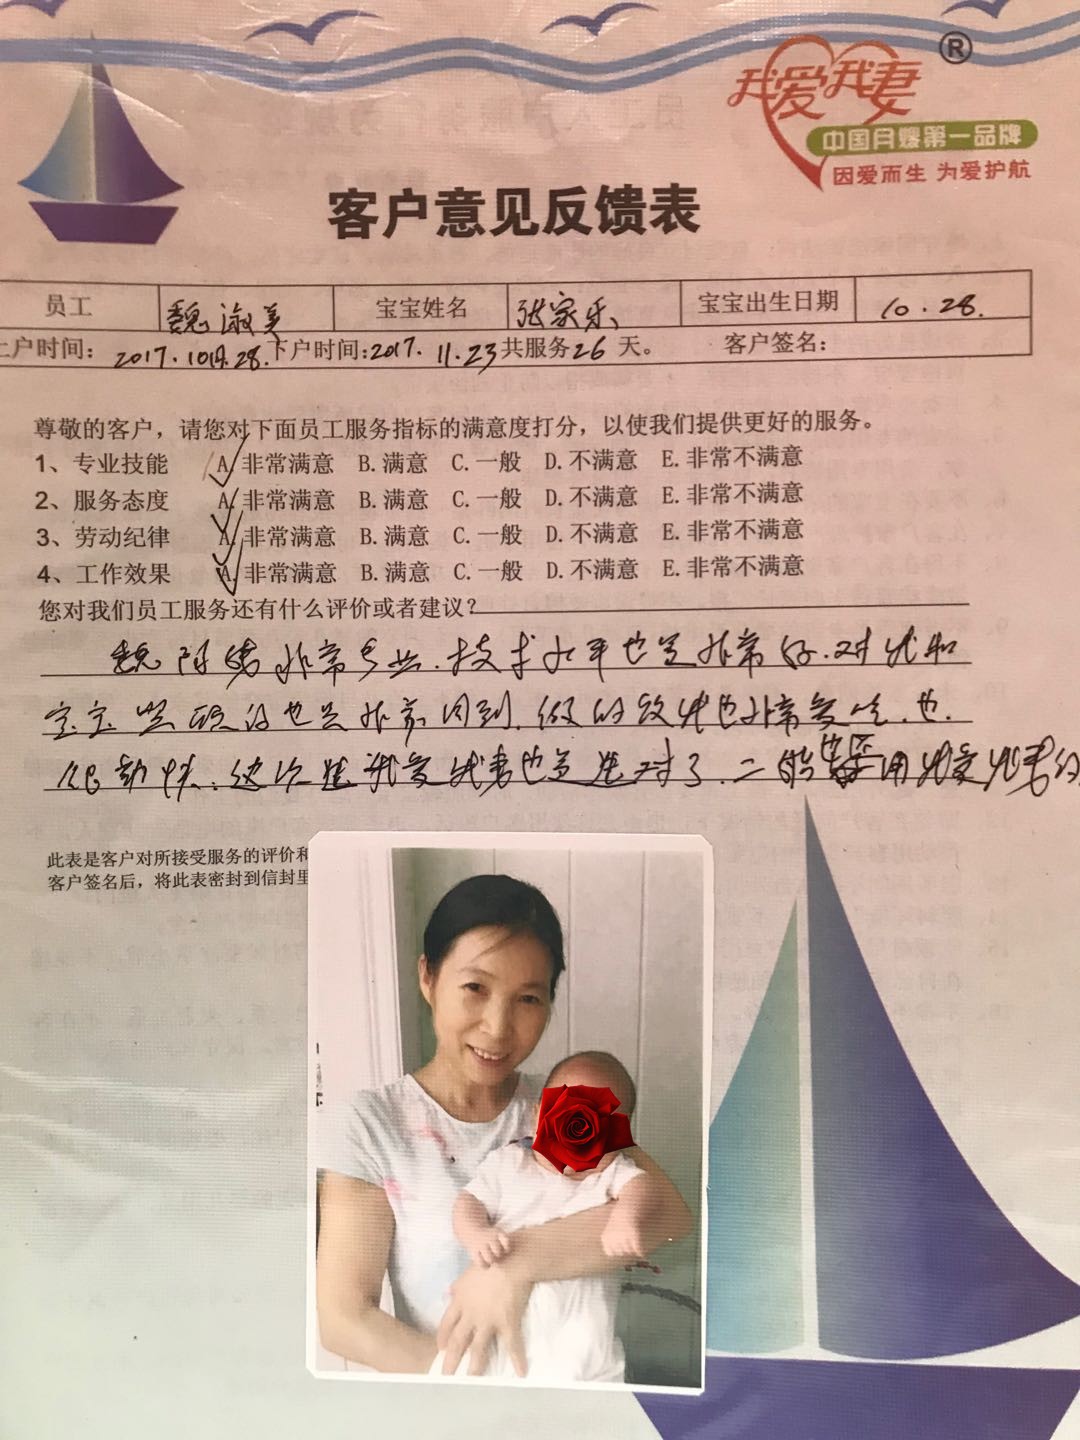 我爱我妻®
中国月嫂第一品牌
因爱而生 为爱护航
客户意见反馈表
员工 魏淑美 宝宝姓名 张家乐 宝宝出生日期 10.28.
上户时间: 2017.10月.28. 下户时间:2017.11.23 共服务26天。 客户签名:
尊敬的客户，请您对下面员工服务指标的满意度打分，以使我们提供更好的服务。
1、专业技能 A.非常满意 B.满意 C.一般 D.不满意 E.非常不满意
2、服务态度 A.非常满意 B.满意 C.一般 D.不满意 E.非常不满意
3、劳动纪律 A.非常满意 B.满意 C.一般 D.不满意 E.非常不满意
4、工作效果 A.非常满意 B.满意 C.一般 D.不满意 E.非常不满意
您对我们员工服务还有什么评价或者建议?
魏阿姨非常专业.技术水平也是非常好.对我和
宝宝照顾的也是非常周到.做的饭我也非常爱吃.也.
很勤快.这次选我爱我妻也是选对了.二胎 用我爱我妻的
此表是客户对所接受服务的评价和
客户签名后，将此表密封到信封里